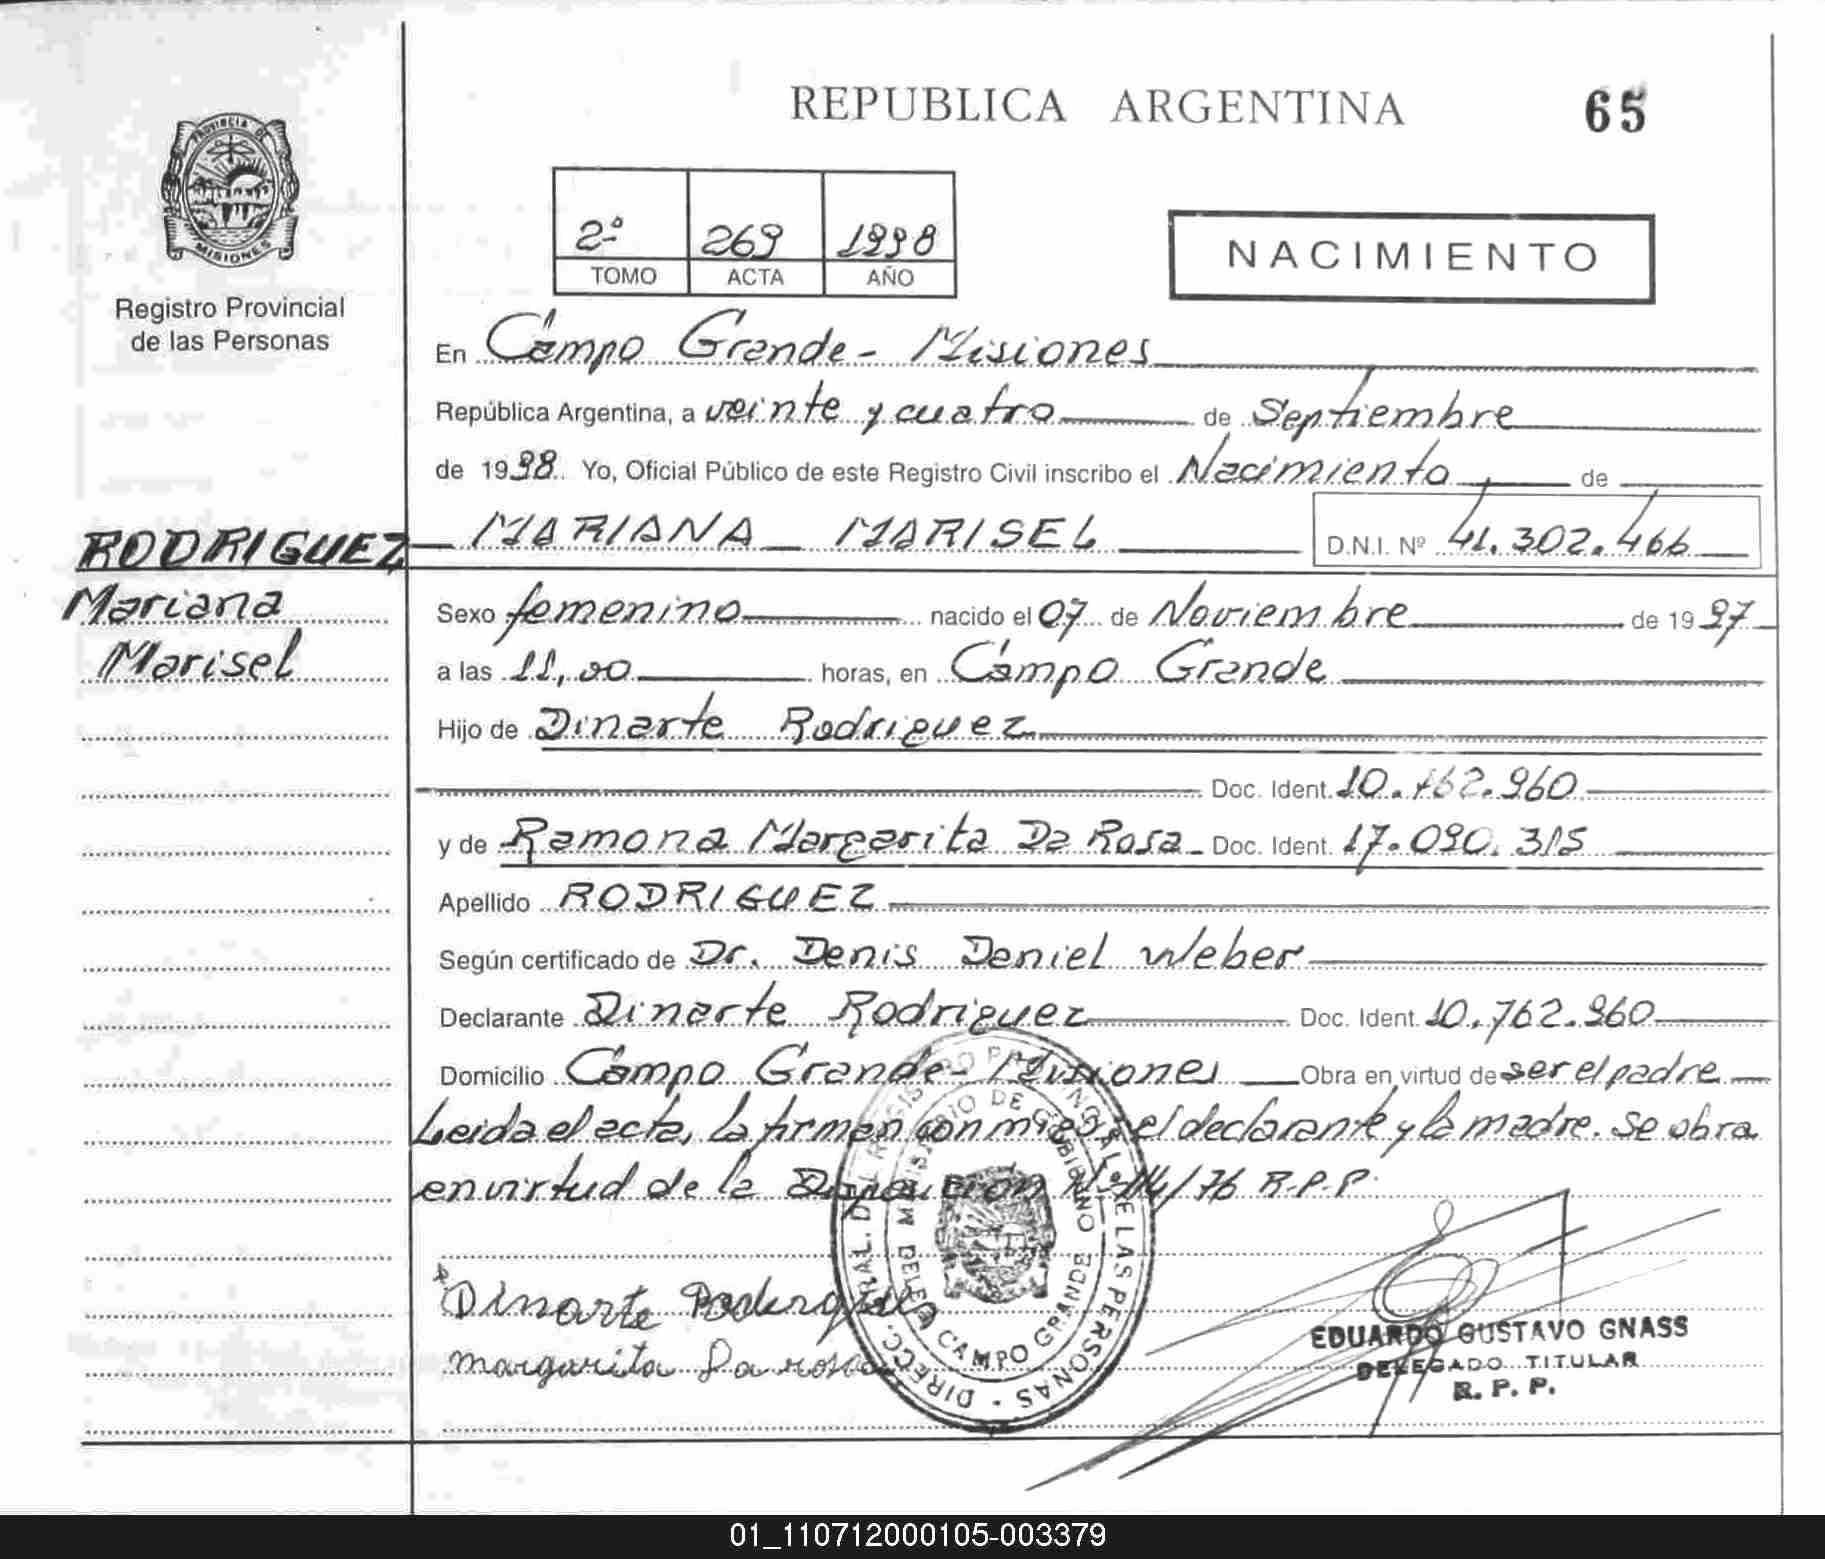 REPUBLICA ARGENTINA
65
PROVINCIA DE
MISIONES
Registro Provincial
de las Personas
2º 269 1998
TOMO ACTA AÑO
NACIMIENTO
En Campo Grande - Misiones
República Argentina, a veinte y cuatro de Septiembre
de 1998 Yo, Oficial Público de este Registro Civil inscribo el Nacimiento de
RODRIGUEZ MARIANA MARISEL D.N.I. Nº 41.302.466
Mariana
Marisel
Sexo femenino nacido el 07 de Noviembre de 1997
a las 11,00 horas, en Campo Grande
Hijo de Dinarte Rodriguez
Doc. Ident. 10.762.960
y de Ramona Margarita Da Rosa Doc. Ident. 17.090.315
Apellido RODRIGUEZ
Según certificado de Dr. Denis Daniel Weber
Declarante Dinarte Rodriguez Doc. Ident. 10.762.960
Domicilio Campo Grande - Misiones Obra en virtud de ser el padre
Leida el acta, la firman conmigo el declarante y la madre. Se obra
en virtud de la Disposición Nº 114/76 R.P.P.
Dinarte Rodriguez
margarita Da rosa
DIRECC. GRAL. DEL REGISTRO PROVINCIAL DE LAS PERSONAS
MINISTERIO DE GOBIERNO
DELEG. CAMPO GRANDE
EDUARDO GUSTAVO GNASS
DELEGADO TITULAR
R. P. P.
01_110712000105-003379